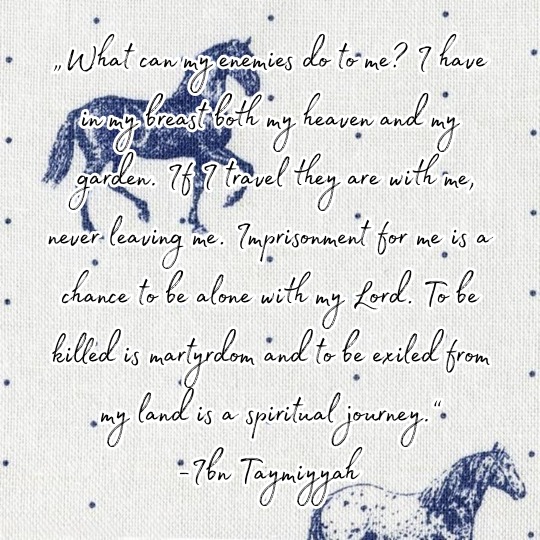 „What can my enemies do to me? I have
in my breast both my heaven and my
garden. If I travel they are with me,
never leaving me. Imprisonment for me is a
chance to be alone with my Lord. To be
killed is martyrdom and to be exiled from
my land is a spiritual journey.“
-Ibn Taymiyyah